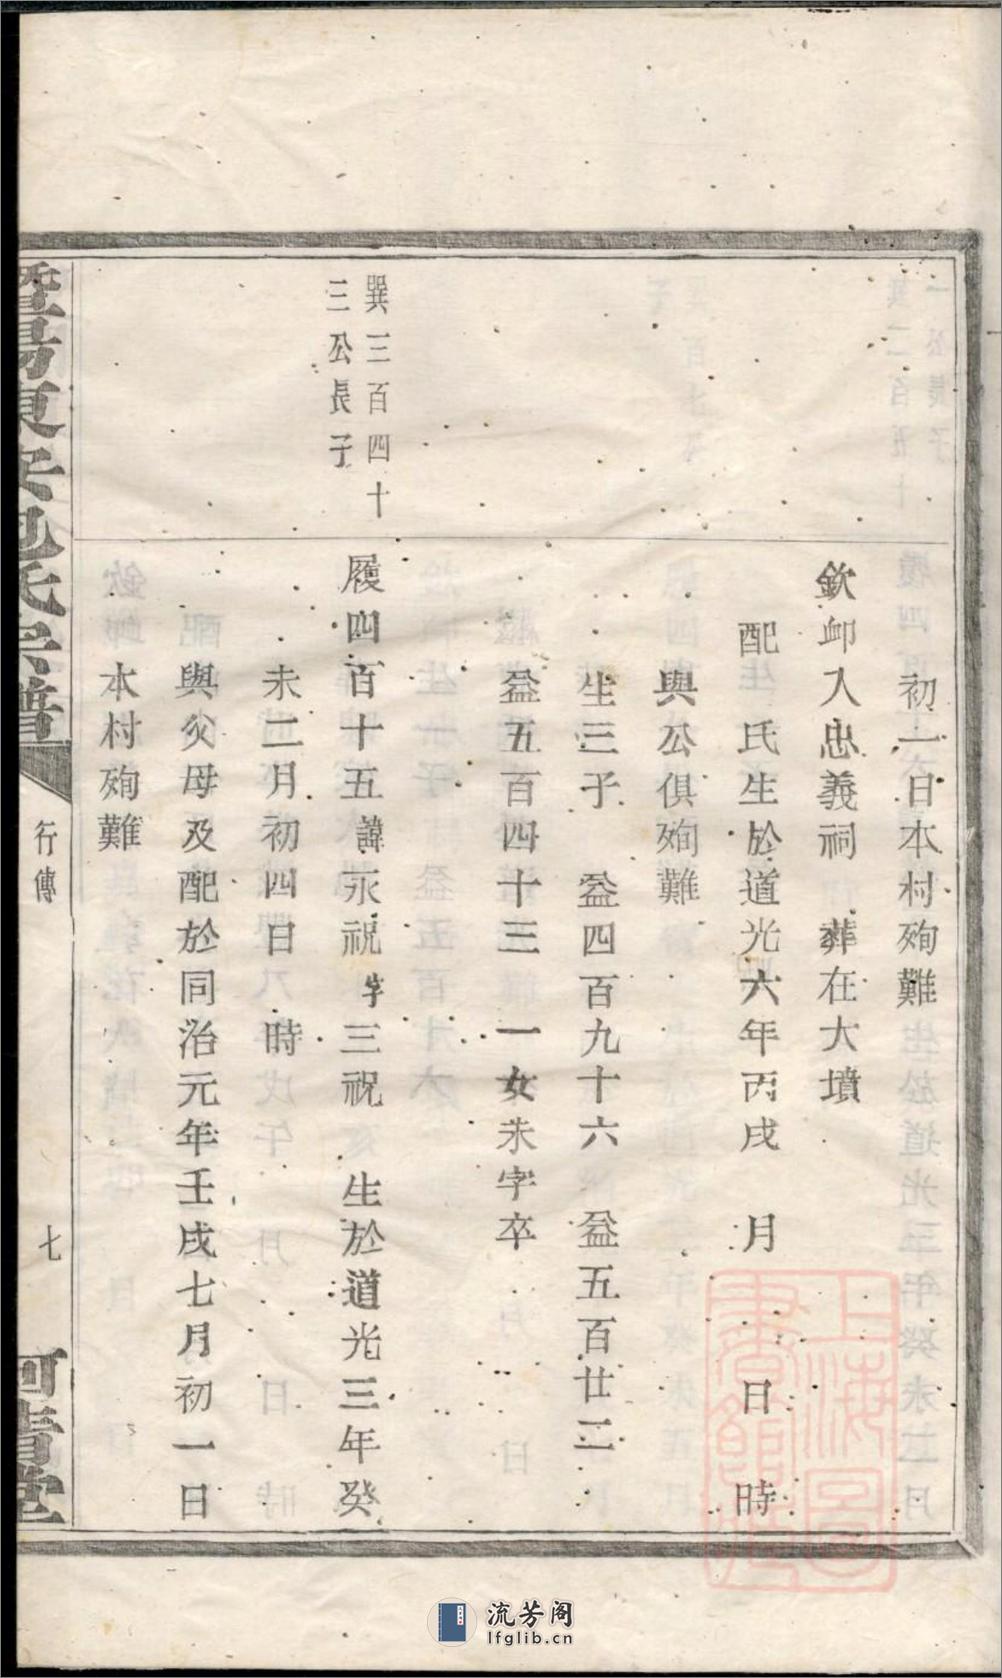 初一日本村殉難
欽卹入忠義祠 葬在大墳
配 氏生於道光六年丙戌 月 日 時
與公俱殉難
生三子 益四百九十六 益五百廿二
益五百四十三 一女未字卒
巽三百四十
三公長子
履四百十五諱永祝字三祝 生於道光三年癸
未二月初四日 時
與父母及配於同治元年壬戌七月初一日
本村殉難
暨陽東安包氏宗譜
行傳
七
河清堂
上海圖書館藏
流芳阁
lfglib.cn